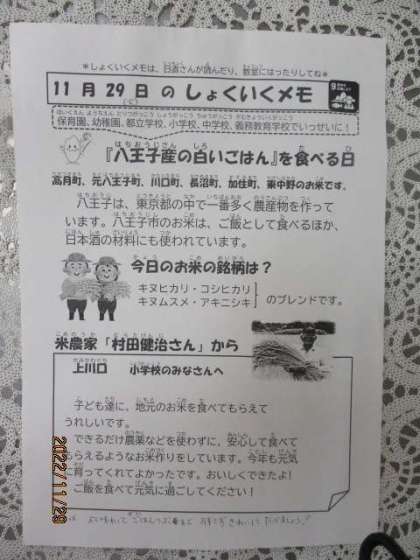 ＊しょくいくメモは、日直さんが読んだり、教室にはったりしてね＊
11月29日のしょくいくメモ
保育園、幼稚園、都立学校、小学校、中学校、義務教育学校でいっせいに！
『八王子産の白いごはん』を食べる日
高月町、元八王子町、川口町、長沼町、加住町、東中野のお米です。
八王子は、東京都の中で一番多く農産物を作って
います。八王子市のお米は、ご飯として食べるほか、
日本酒の材料にも使われています。
今日のお米の銘柄は？
キヌヒカリ・コシヒカリ
キヌムスメ・アキニシキ
のブレンドです。
米農家「村田健治さん」から
上川口 小学校のみなさんへ
子ども達に、地元のお米を食べてもらえて
うれしいです。
できるだけ農薬などを使わずに、安心して食べて
もらえるようなお米作りをしています。今年も元気
に育ってくれてよかったです。おいしくできたよ！
ご飯を食べて元気に過ごしてください！
2022/11/29